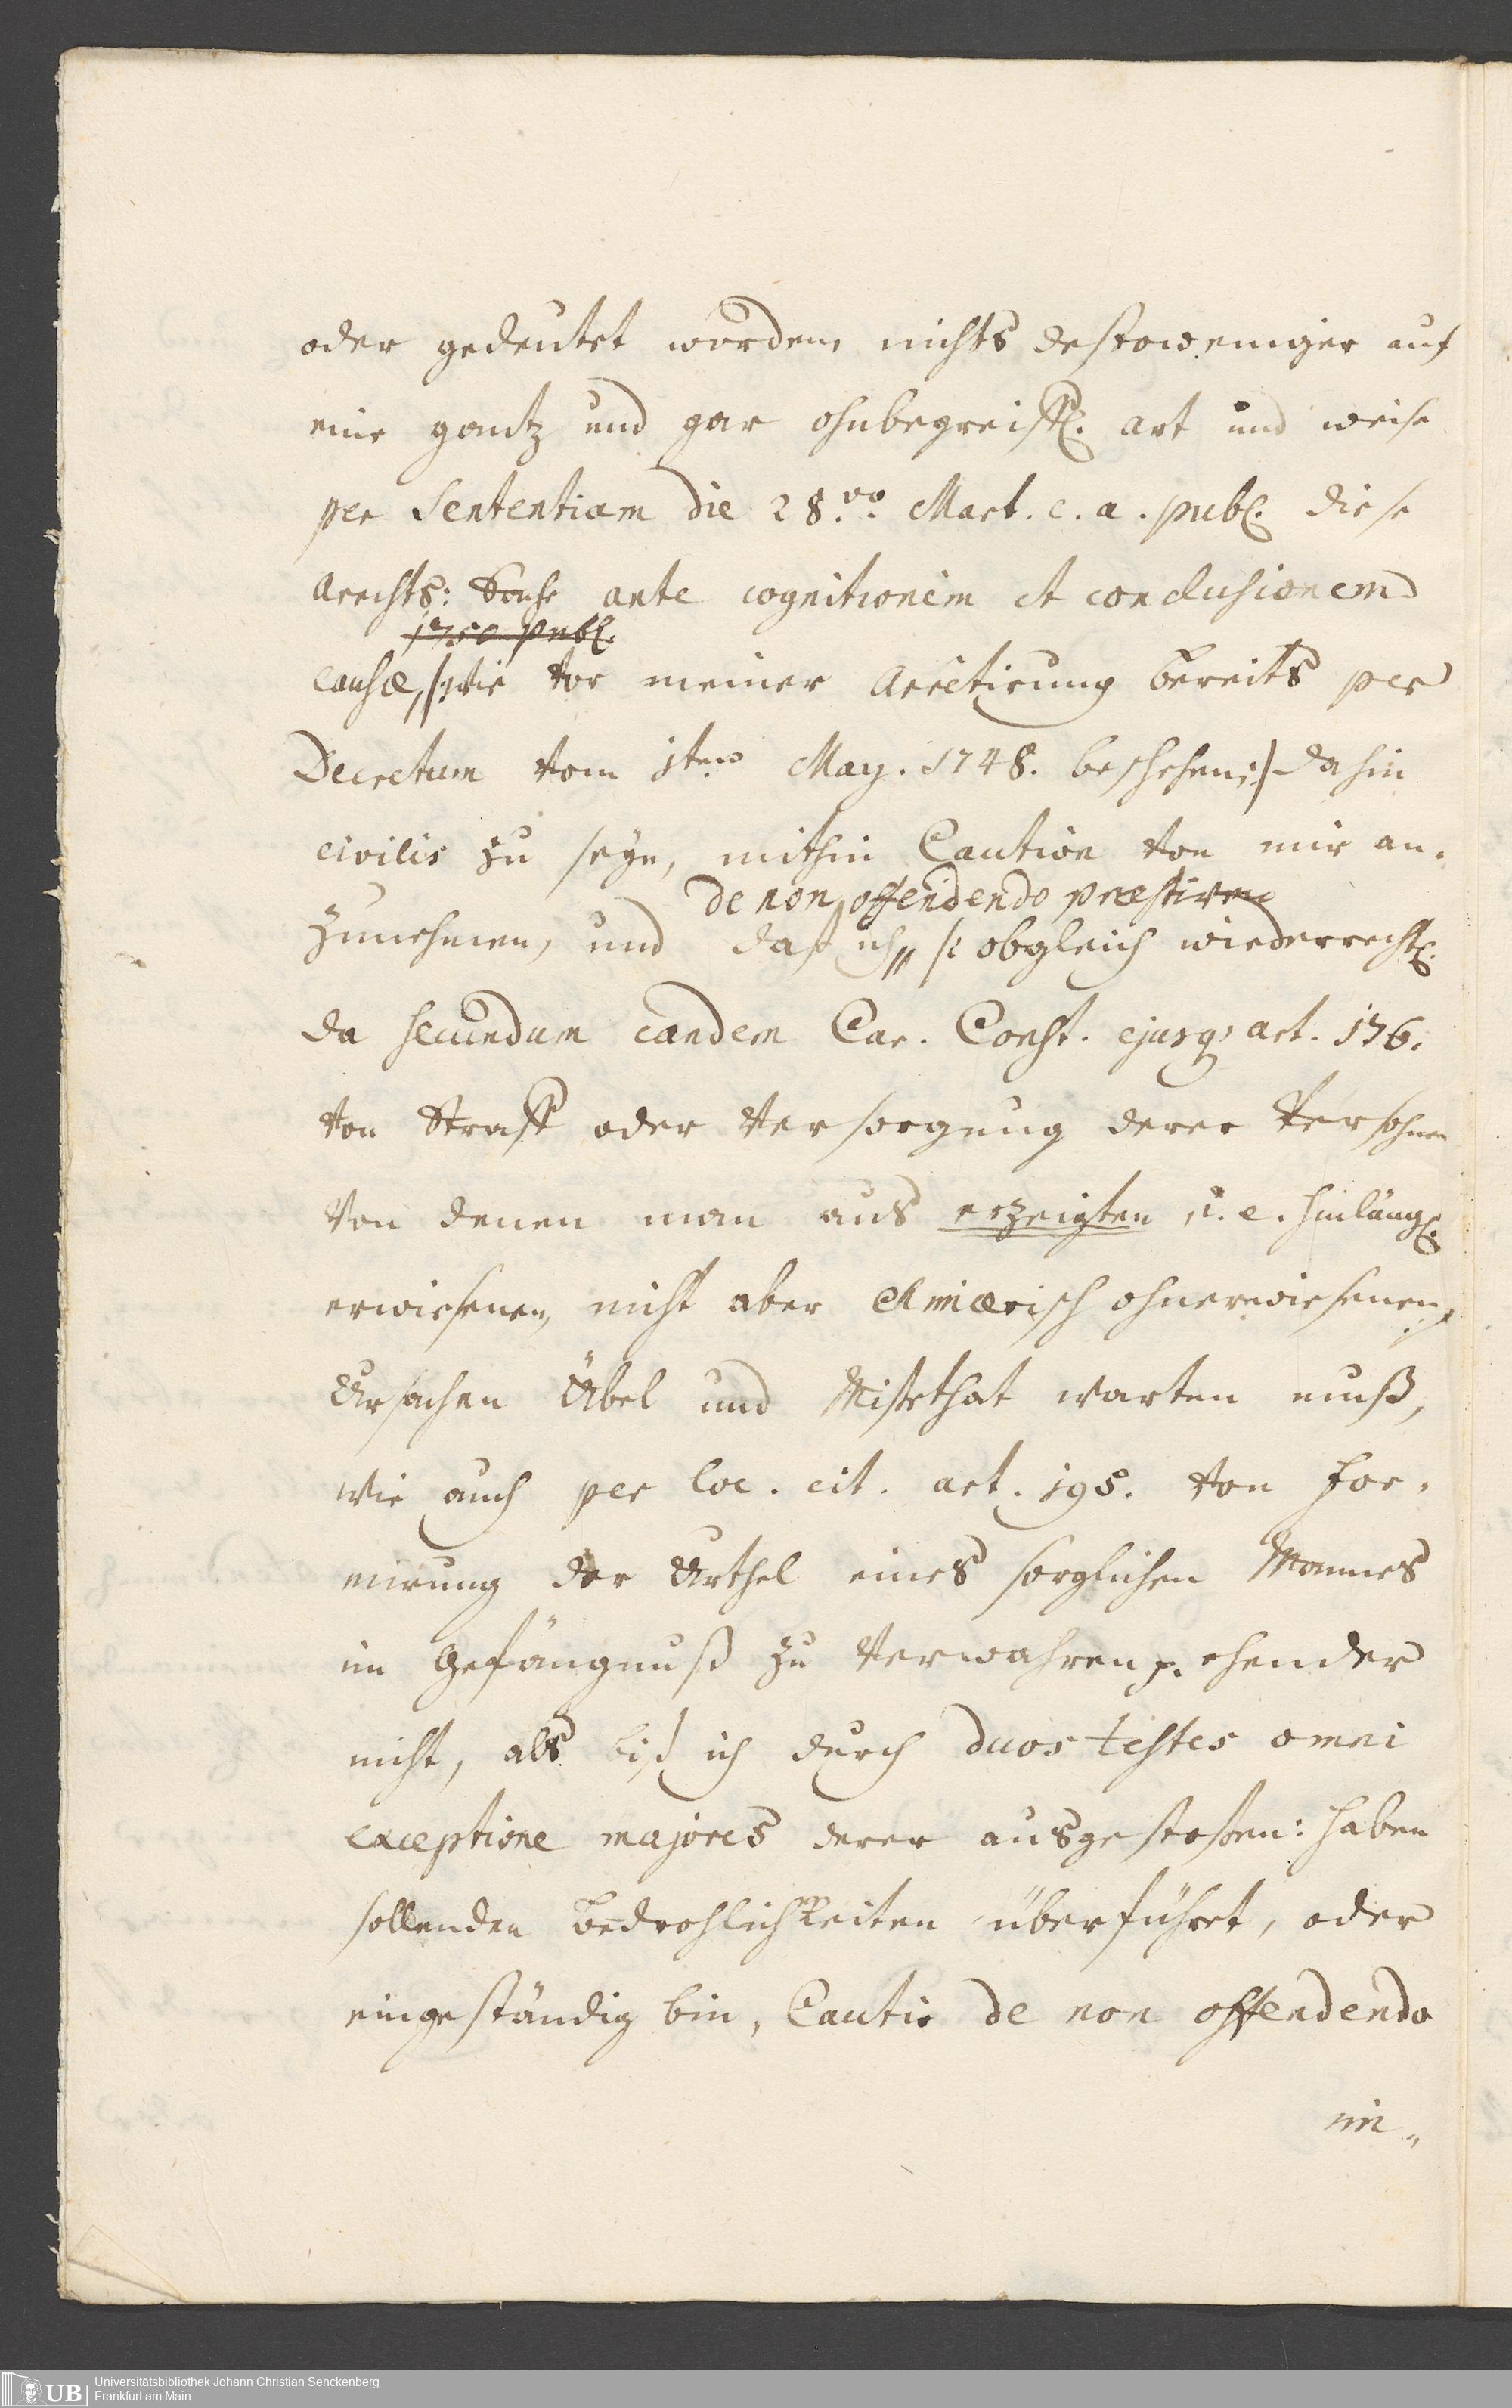 oder gedeutet worden, nichts destoweniger auf
eine gantz und gar ohnbegreiffl. art und weise
per Sententiam die 28.vo Mart. c. a. publ. diese
Arrests: Sache ante cognitionem et conclusionem
1750 publ.
causæ, /: wie vor meiner Arretirung bereits per
Decretum vom 1ten May. 1748. beschehen :/ dahin
civilis zu seyn, mithin Caution von mir an-
de non offendendo præstiren
zunehmen, und daß ich „ /: obgleich wiederrechtl.
da secundum eandem Car. Const. ejusq; art. 176.
von Straff oder Versorgung derer Persohnen
von denen man aus erzeigten, i. e. hinlängl.
erwiesenen, nicht aber chimærisch ohnerwiesenen,
Ursachen Übel und Missethat warten muß,
wie auch per loc. cit. art. 195. von for-
mirung der Urthel eines sorglichen Mannes
im Gefängnuß zu verwahren p. ehender
nicht, als biß ich durch duos testes omni
exceptione majores derer ausgestoßen: haben
sollenden Bedrohlichkeiten überführet, oder
eingeständig bin, Cautio de non offendendo
im„
UB
Universitätsbibliothek Johann Christian Senckenberg
Frankfurt am Main